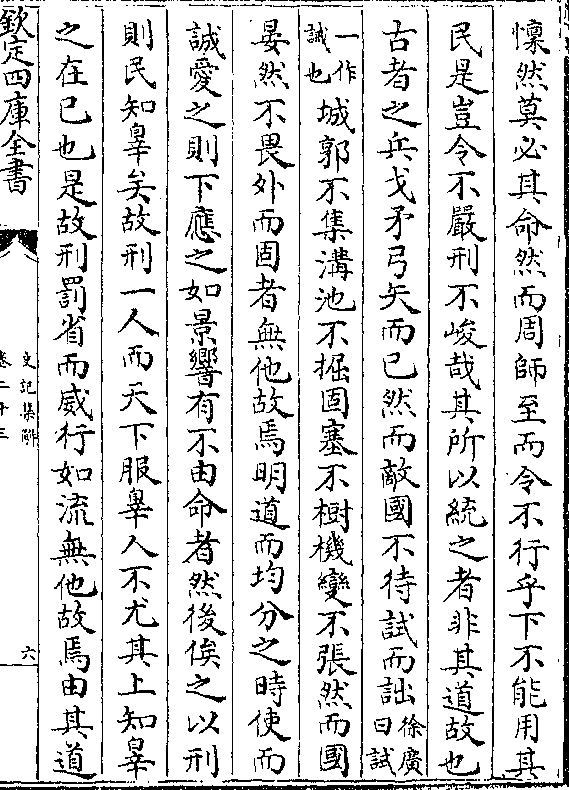 懔然莫必其命然而周師至而令不行乎下不能用其
民是豈令不嚴刑不峻哉其所以統之者非其道故也
古者之兵戈矛弓矢而已然而敵國不待試而詘徐廣曰試
一作誠也城郭不集溝池不掘固塞不樹機變不張然而國
晏然不畏外而固者無他故焉明道而均分之時使而
誠愛之則下應之如景響有不由命者然後俟之以刑
則民知辠矣故刑一人而天下服辠人不尤其上知辠
之在已也是故刑罰省而威行如流無他故焉由其道
欽定四庫全書
史記集解
卷二十三
六